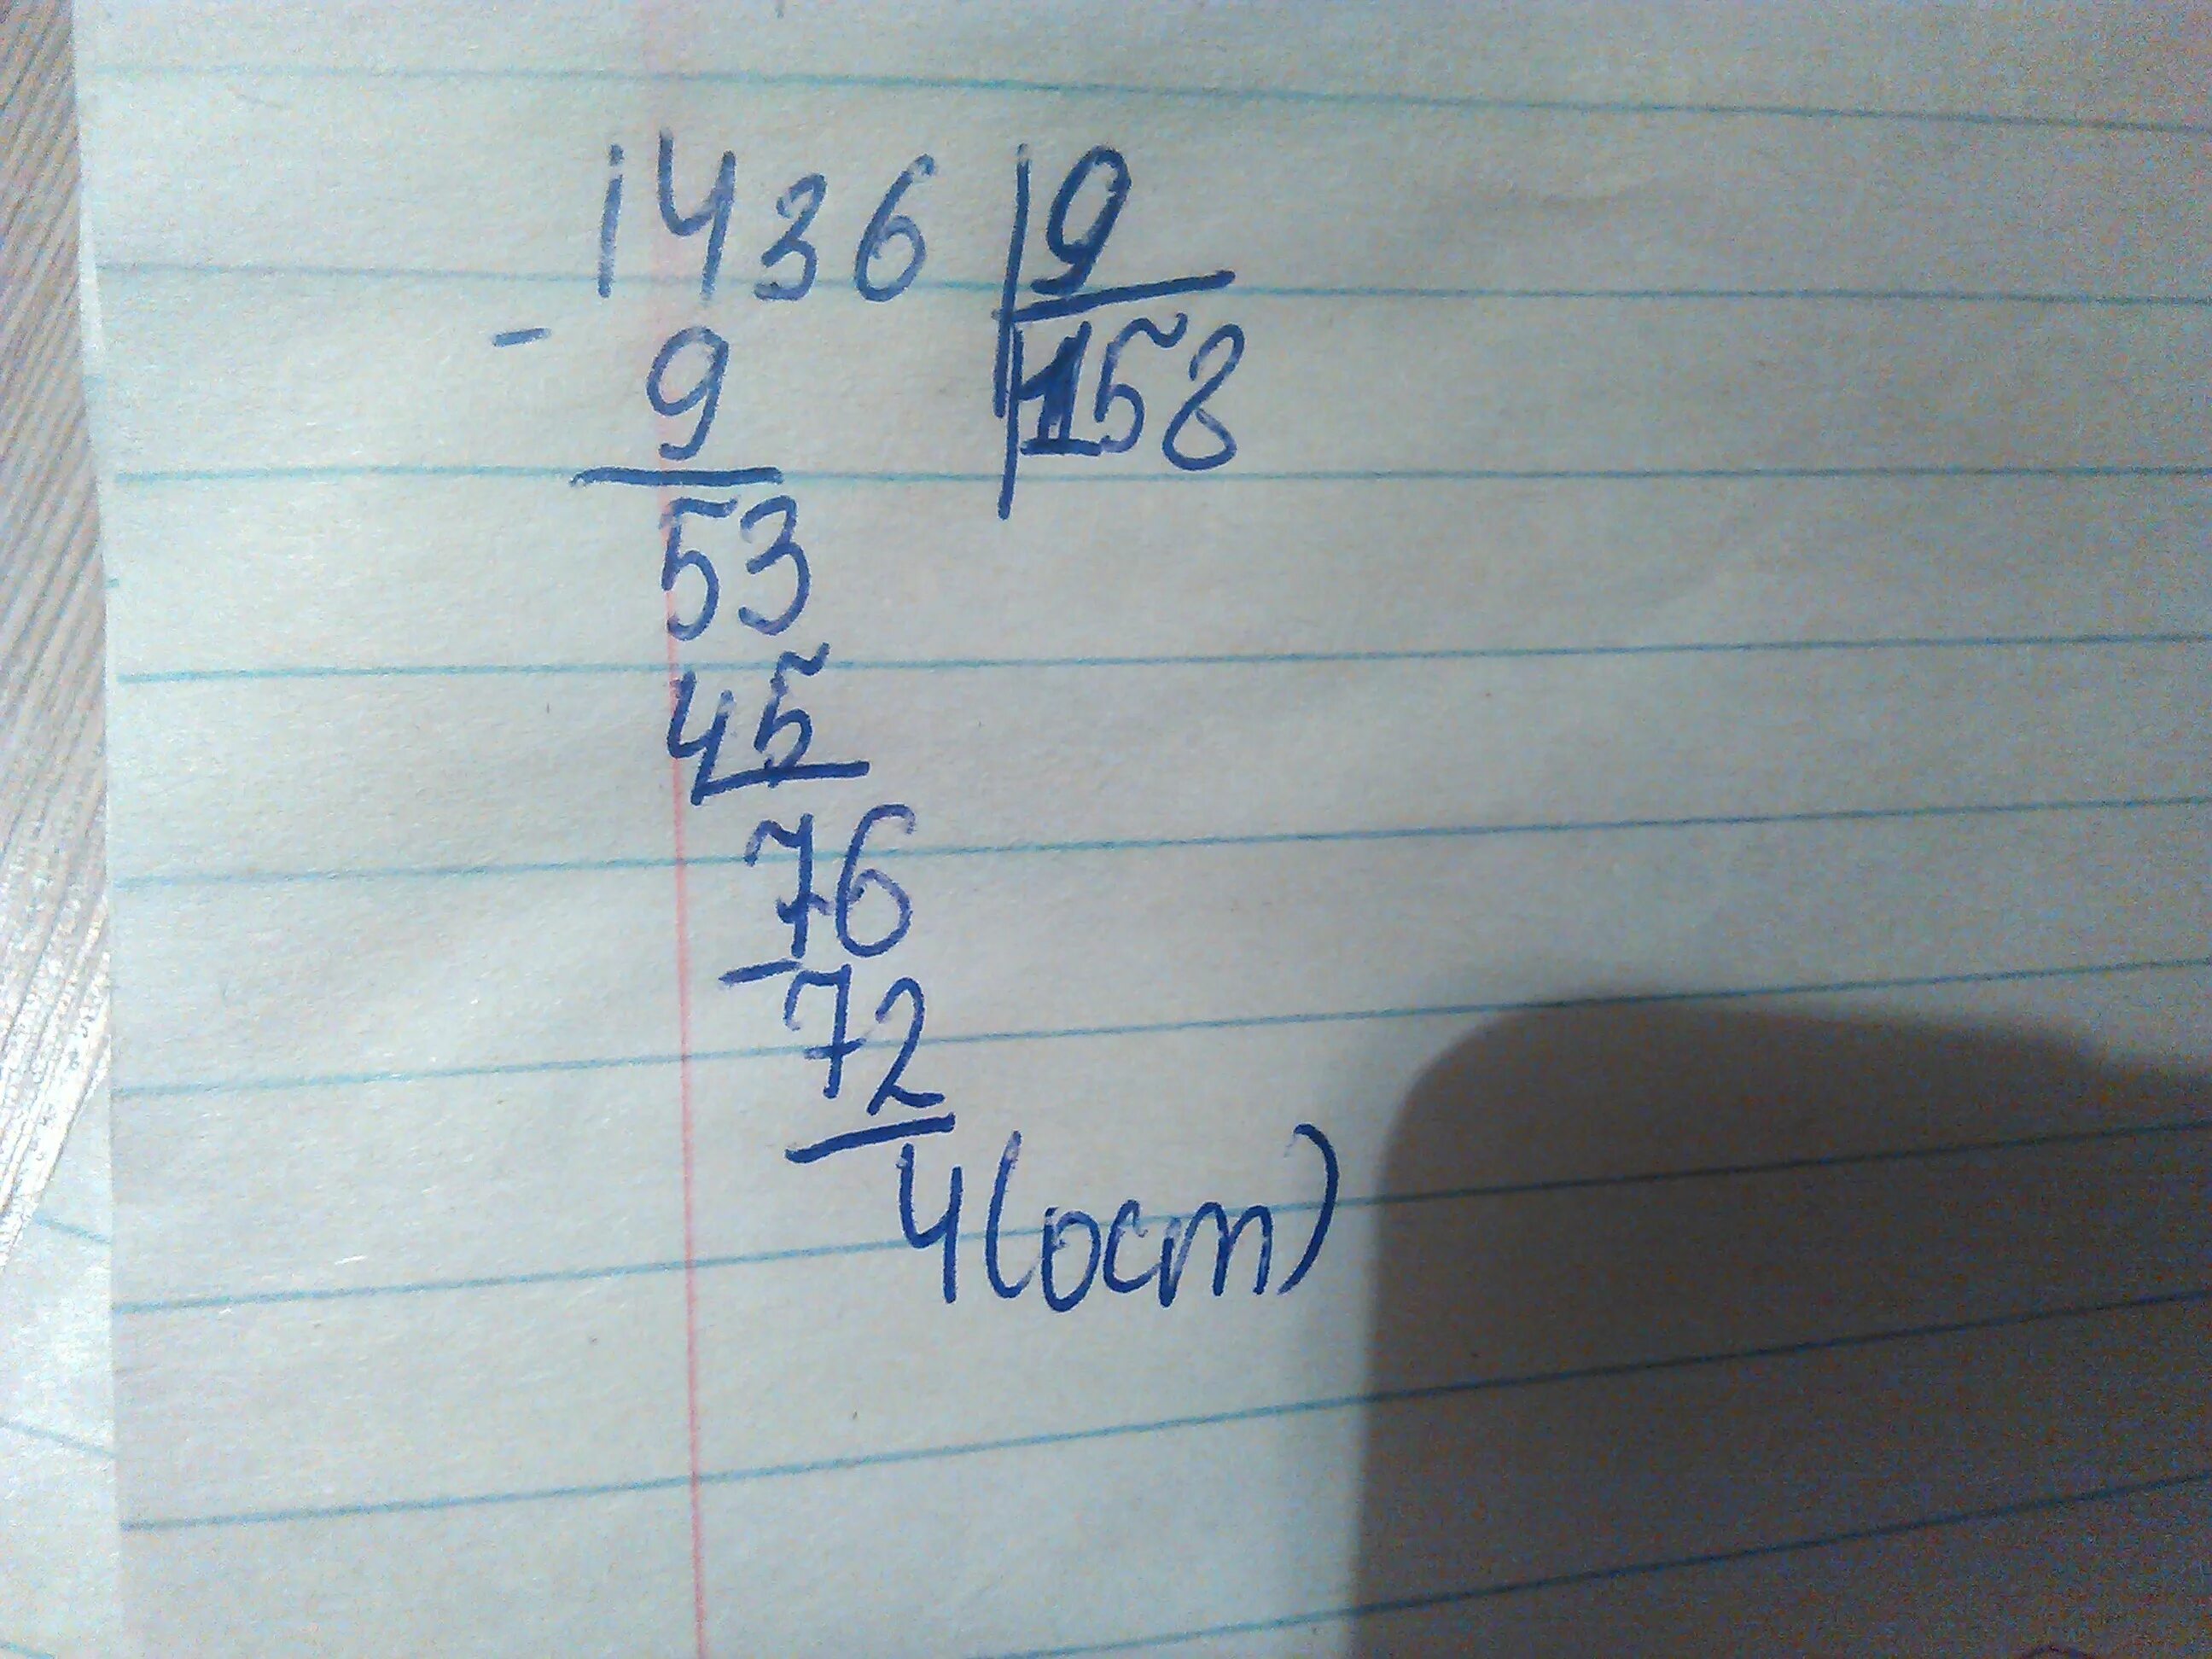 1436 | 9
- 9 | 158
53
45
76
- 72
4 (ост)